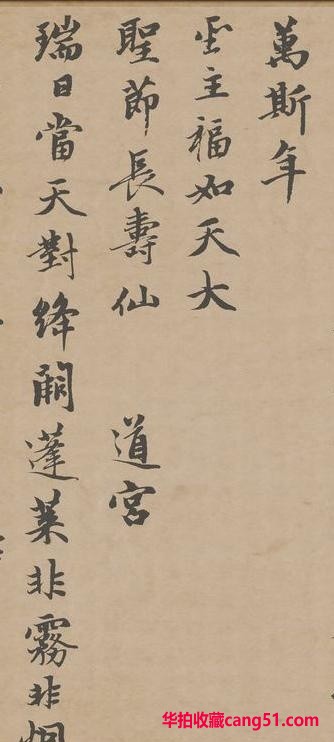 萬斯年
聖主福如天大
聖節長壽仙 道宮
瑞日當天對絳闕蓬萊非霧非烟
华拍收藏cang51.com